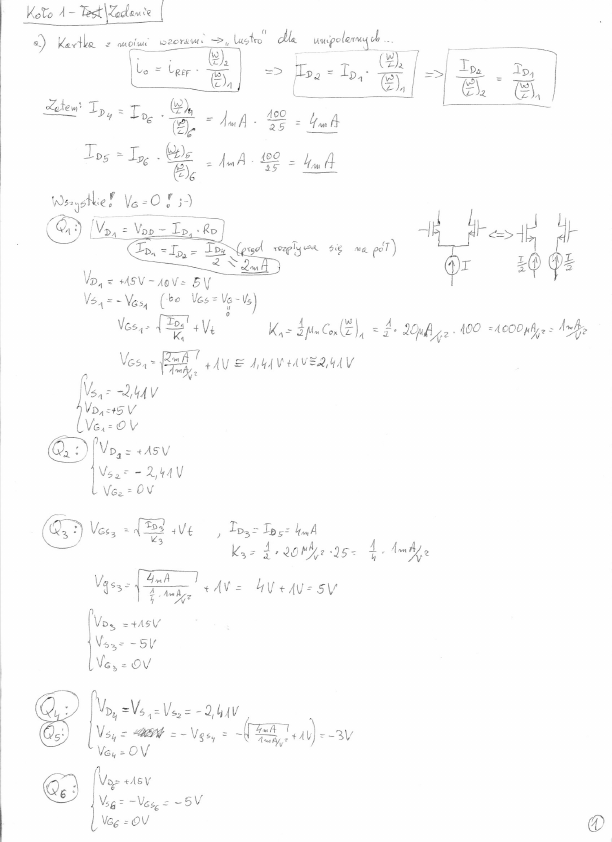 Koło 1 - Test/Zadanie
a) Kartka z moimi wzorami → „lustro" dla unipolarnych...
i₀ = i_REF · (W/L)₂/(W/L)₁ => I_D2 = I_D1 · (W/L)₂/(W/L)₁ => I_D2/(W/L)₂ = I_D1/(W/L)₁
Zatem: I_D4 = I_D6 · (W/L)₄/(W/L)₆ = 1mA · 100/25 = 4mA
I_D5 = I_D6 · (W/L)₅/(W/L)₆ = 1mA · 100/25 = 4mA
Wszystkie! V_G = 0 ! ;-)
Q₁: V_D1 = V_DD - I_D1 · R_D
I_D1 = I_D2 = I_D4/2 = 2mA (prąd rozpływa się na pół)
I <=> I/2 I/2
V_D1 = +15V - 10V = 5V
V_S1 = -V_GS1 (bo V_GS = V_G - V_S)
0
V_GS1 = √(I_D1/K₁) + Vt K₁ = 1/2 μn Cox (W/L)₁ = 1/2 · 20μA/V² · 100 = 1000μA/V² = 1mA/V²
V_GS1 = √(2mA/1mA/V²) + 1V ≅ 1,41V + 1V ≅ 2,41V
V_S1 = -2,41V
V_D1 = +5V
V_G1 = 0V
Q₂: V_D2 = +15V
V_S2 = -2,41V
V_G2 = 0V
Q₃: V_GS3 = √(I_D3/K₃) + Vt , I_D3 = I_D5 = 4mA
K₃ = 1/2 · 20μA/V² · 25 = 1/4 · 1mA/V²
Vgs₃ = √(4mA/(1/4 · 1mA/V²)) + 1V = 4V + 1V = 5V
V_D3 = +15V
V_S3 = -5V
V_G3 = 0V
Q₄: V_D4 = V_S1 = V_S2 = -2,41V
Q₅: V_S4 = -Vgs₄ = -(√(4mA/1mA/V²) + 1V) = -3V
V_G4 = 0V
V_D = +15V
Q₆: V_S6 = -V_GS6 = -5V
V_G6 = 0V
1